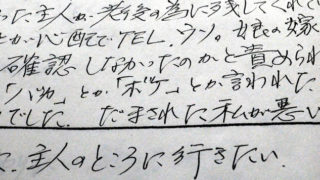 った主人が老後の為に残してくれて
とか心配でTEL.ウソ。娘の嫁
確認しなかったのかと責められ
「バカ」とか「ボケ」とか言われた
でした。だまされた私が悪い
主人のところに行きたい.